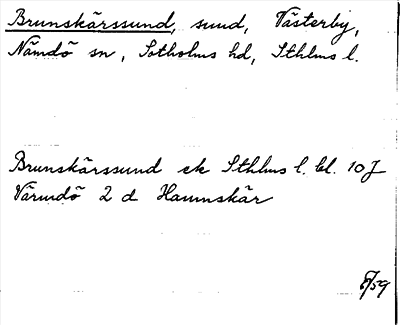 Brunskärssund, sund, Västerby,
Nämdö sn, Sotholms hd, Sthlms l.
Brunskärssund ek Sthlms l. bl. 10 J
Värmdö 2 d Hamnskär
/59